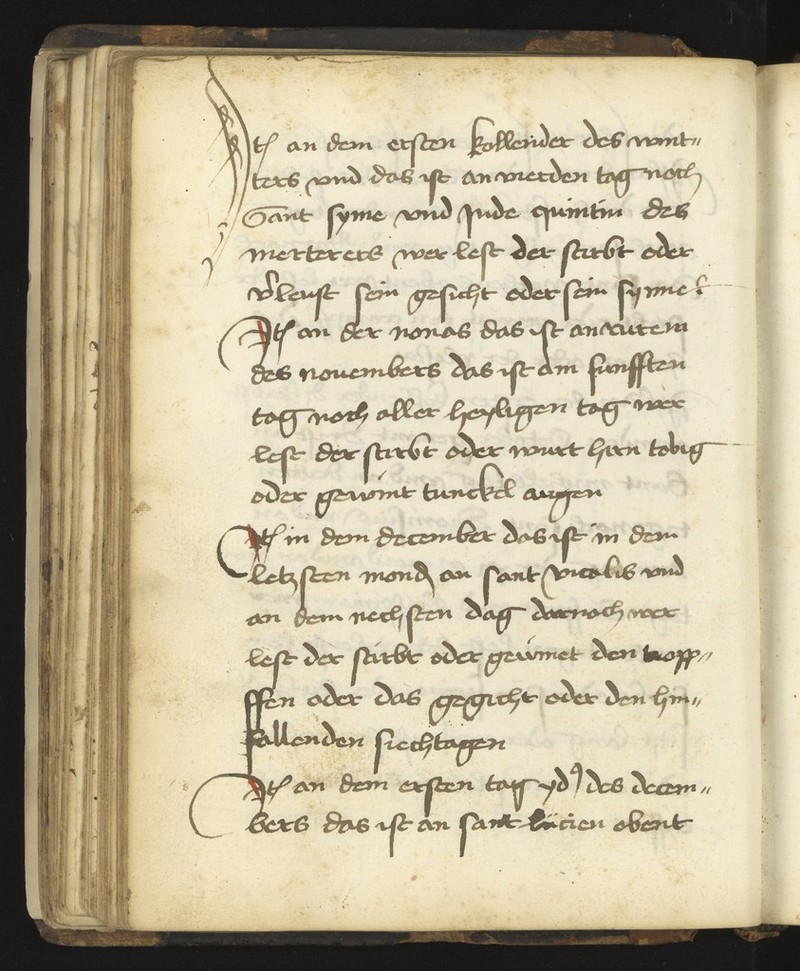 Itē an dem ersten kollender des wint-
ters vnd das ist an vierden tag noch
Sant syme vnd Jude quintin des
merterers wer lest der stirbt oder
v'leust sein gesicht oder sein synne
Itē an der nonas das ist an
des novembers das ist am funfften
tag noch aller heyligen tag wer
lest der stirbt oder wurt hirn tobig
oder gewint tunckel augen
Itē in dem december das ist in dem
letzsten mond an sant vitalis vnd
an dem nechsten dag dornoch wer
lest der stirbt oder gewinet den tropp-
ffen oder das gegicht oder den hin-
fallenden siechtagen
Itē an dem ersten tag yd9 des decem-
bers das ist an sant lucien obent